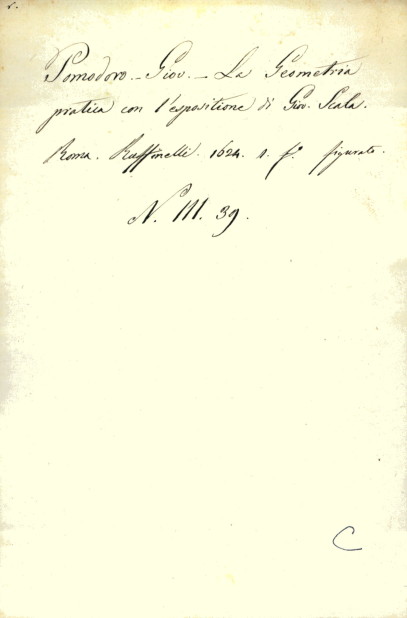 Pomodoro. - Giov. - La Geometria
pratica con l'espositione di Giov. Scala.
Roma. Ruffinelli. 1624. f.º figurato.
N. III. 39.
C